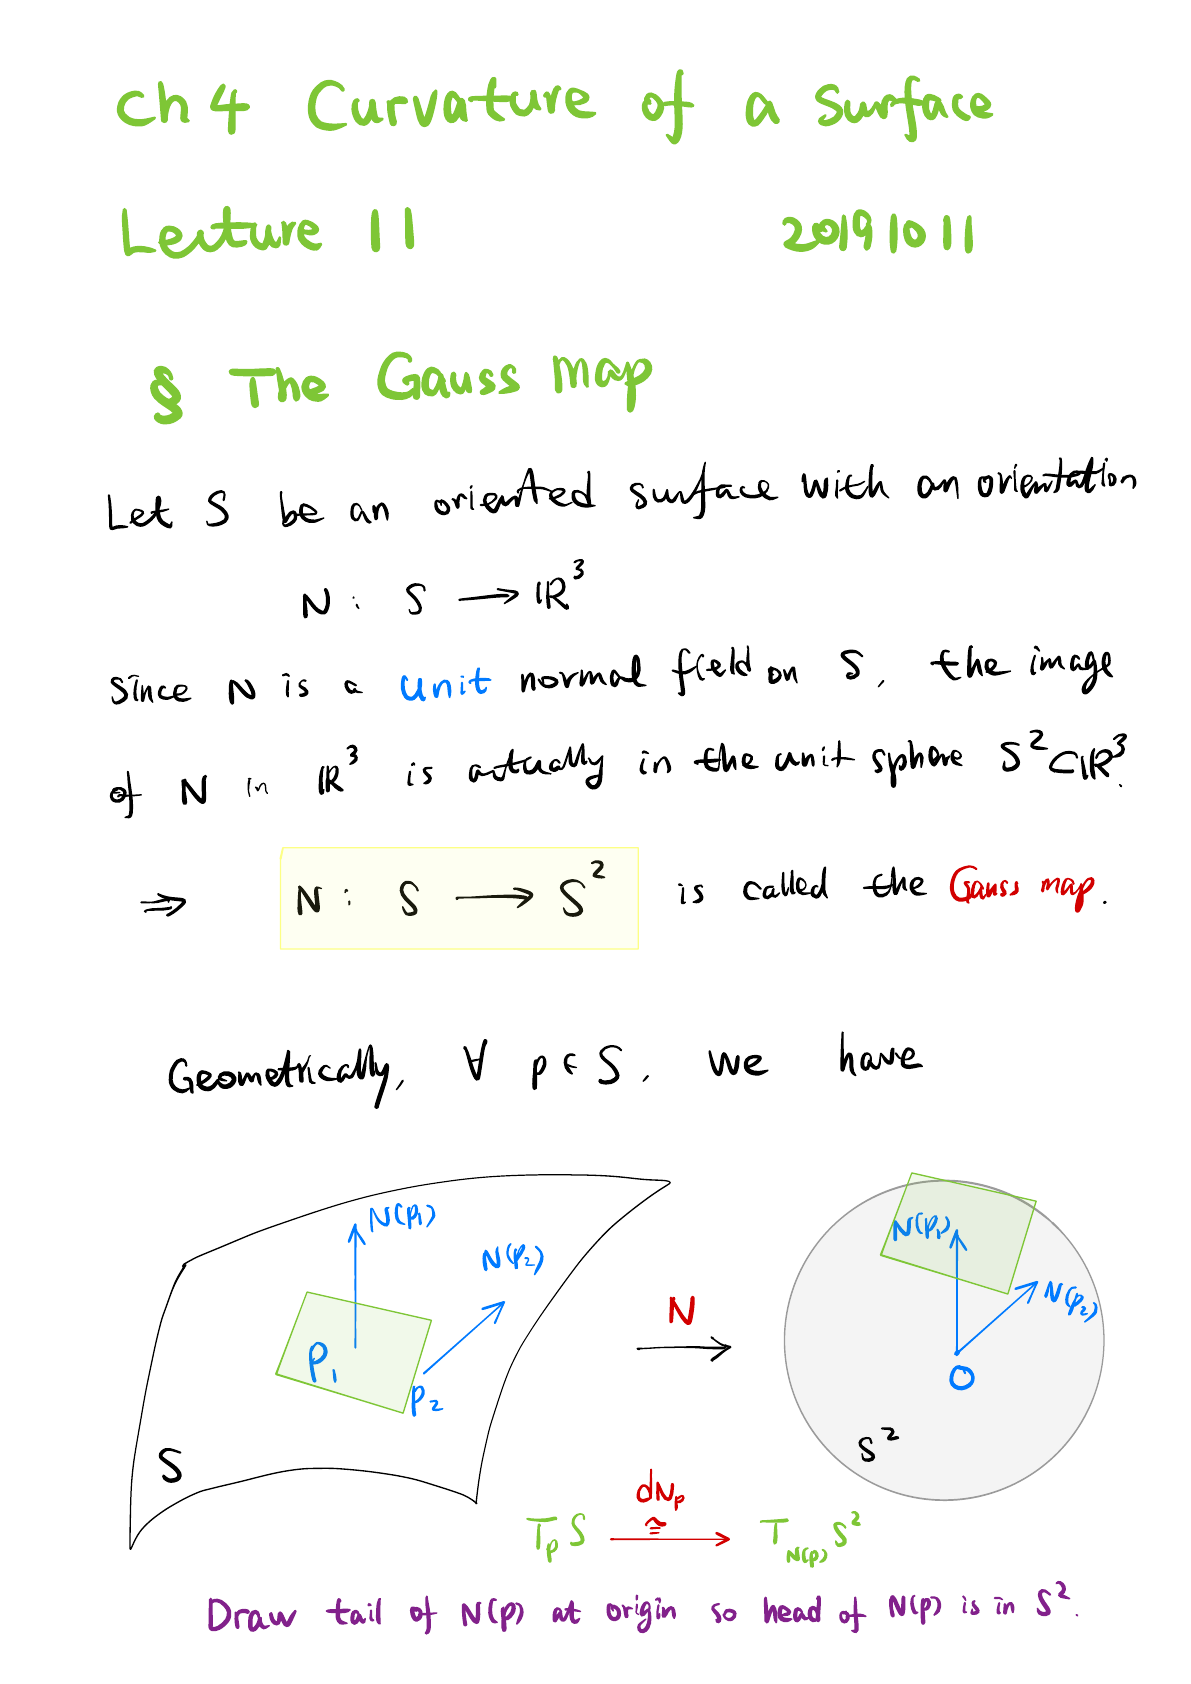 Ch 4 Curvature of a Surface
Lecture 11 20191011
§ The Gauss map
Let S be an oriented surface with an orientation
N : S ⟶ ℝ³
Since N is a unit normal field on S, the image
of N in ℝ³ is actually in the unit sphere S² ⊂ ℝ³.
⇒ N : S ⟶ S² is called the Gauss map.
Geometrically, ∀ p ∈ S, we have
N(p₁)
N(p₂)
P₁
P₂
S
N
N(p₁)
N(p₂)
O
S²
dNₚ
TₚS ≅⟶ T_{N(p)}S²
Draw tail of N(p) at origin so head of N(p) is in S².